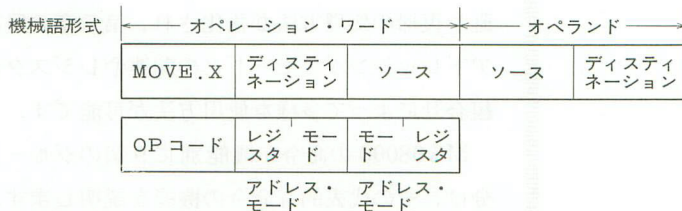 機械語形式 オペレーション・ワード オペランド
MOVE.X ディスティネーション ソース ソース ディスティネーション
OPコード レジスタ モード モード レジスタ
アドレス・モード アドレス・モード